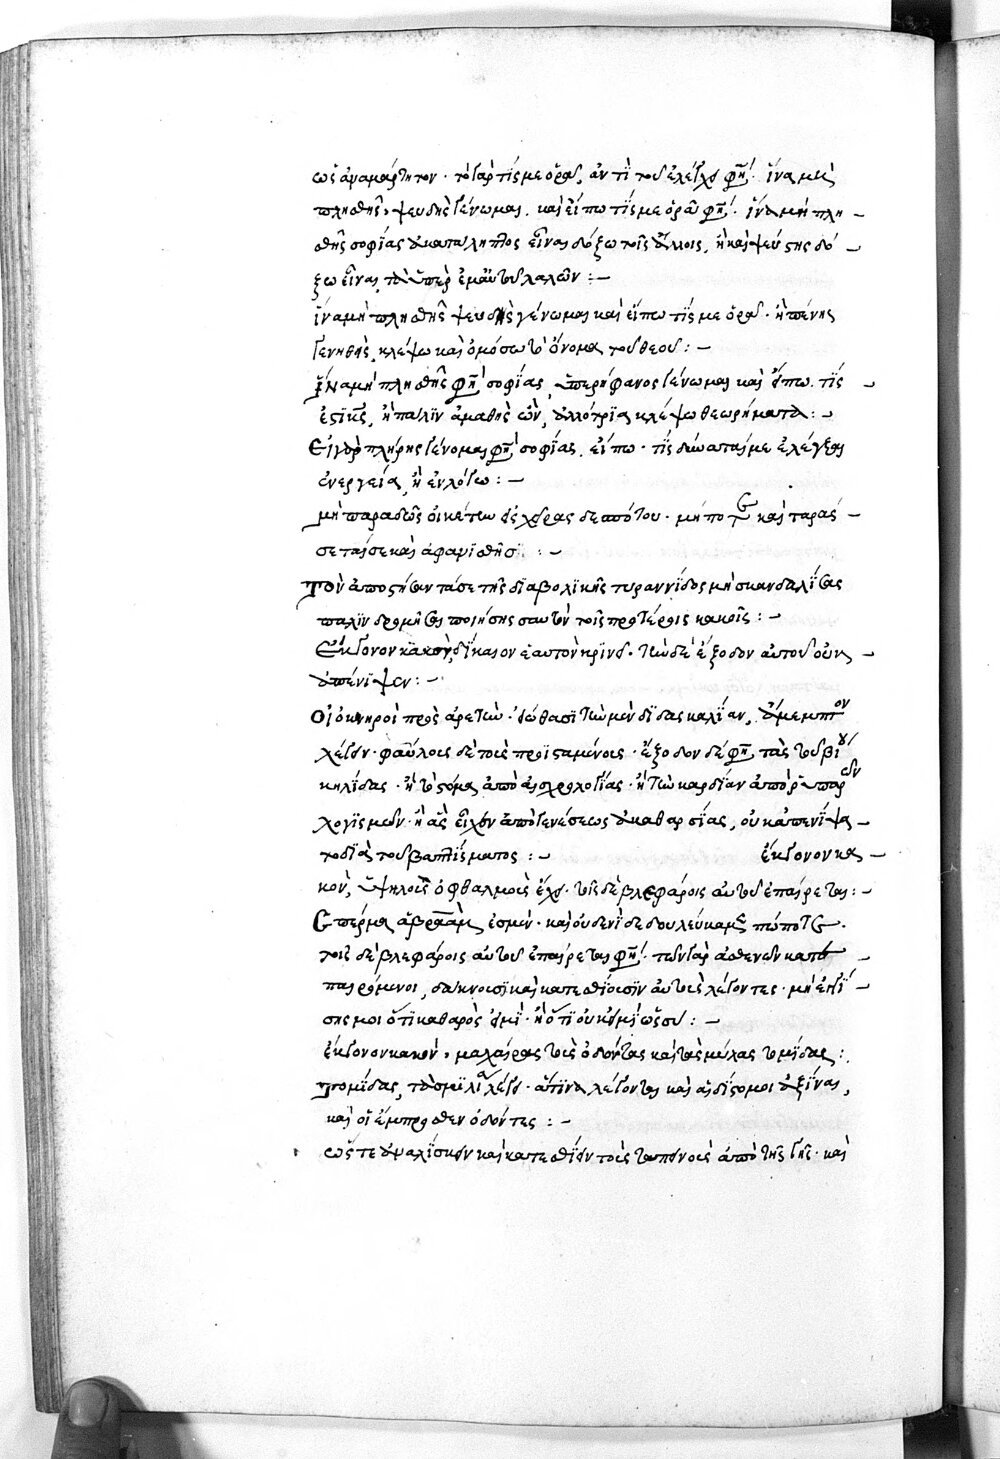 ὡς ἀναμάρτητον · τὸ γὰρ τίς με ὁρᾷ, ἀντὶ τοῦ ἐλέγχει φησί · ἵνα μὴ
πλησθεὶς, ψευδὴς γένωμαι, καὶ εἴπω τίς με ὁρᾷ φησί · ἵνα μὴ πλη –
σθεὶς σοφίας ἀκατάληπτος εἶναι δόξω τοῖς ἄλλοις, ἢ καὶ ψεύστης δό –
ξω εἶναι, τὰ ὑπὲρ ἐμαυτοῦ λαλῶν : –
ἵνα μὴ πλησθεὶς ψευδὴς γένωμαι καὶ εἴπω τίς με ὁρᾷ · ἢ πένης
γενηθεὶς, κλέψω καὶ ὀμόσω τὸ ὄνομα τοῦ θεοῦ : –
ἵνα μὴ πλησθεὶς φησὶ σοφίας, ὑπερήφανος γένωμαι καὶ εἴπω, τίς –
ἢ πάλιν ἀμαθὴς ὢν, ἀλλότρια κλέψω θεωρήματα : –
Εἰ γὰρ πλήρης γένομαι φησὶ σοφίας, εἴπω · τίς δύναταί με ἐλέγξαι
ἐνεργεία, ἢ ἐν λόγω : –
μὴ παραδῷς οἰκέτην εἰς χεῖρας δεσπότου · μήποτε καὶ ταράσ –
σεταί σε καὶ ἀφανισθῇς : –
Τὸν ἀποστήσαντά σε τῆς διαβολικῆς τυραννίδος μὴ σκανδαλίσας
πάλιν δραμεῖσθαι ποιήσης σαυτὸν τοῖς προτέροις κακοῖς : –
Ἔκγονον κακὸν, δίκαιον ἑαυτὸν κρίνει · τὴν δὲ ἔξοδον αὐτοῦ οὐκ –
ἀπένιψεν : –
Οἱ ὀκνηροὶ πρὸς ἀρετὴν · εἰώθασι τὴν μὲν ἄμεμπτον
λέγειν · φαύλοις δὲ τοῖς προϊσταμένοις · ἔξοδον δέ φησι, τὰς τοῦ βίου
κηλίδας · ἢ τὸ στόμα ἀπὸ αἰσχρολογίας · ἢ τὴν καρδίαν ἀπὸ ῥυπαρῶν
λογισμῶν · ἢ ἃς εἶχεν ἀπὸ γενέσεως ἀκαθαρσίας, οὐκ ἀπενίψα –
το διὰ τοῦ βαπτίσματος : – ἔκγονον κα –
κὸν, ὑψηλοὺς ὀφθαλμοὺς ἔχει · τοῖς δὲ βλεφάροις αὐτοῦ ἐπαίρεται : –
Σπέρμα ἀβραάμ ἐσμεν · καὶ οὐδενὶ δεδουλεύκαμεν πώποτε ·
τοῖς δὲ βλεφάροις αὐτοῦ ἐπαίρεται φησί · τῶν γὰρ ἀσθενῶν κατε –
παιρόμενοι, δάκνουσι καὶ κατεσθίουσιν αὐτοὺς λέγοντες · μὴ ἐγγί –
σης μοι ὅτι καθαρὸς εἰμὶ · ἢ ὅτι οὐκ εἰμὶ ὡς σύ : –
ἔκγονον κακὸν, μαχαίρας τοὺς ὀδόντας καὶ τὰς μύλας τομίδας :
Τομίδας, τὰ σμιλία λέγει · ἅτινα λέγονται καὶ
καὶ οἱ ἔμπροσθεν ὀδόντες : –
ὥστε ἀναλίσκειν καὶ κατεσθίειν τοὺς ταπεινοὺς ἀπὸ τῆς γῆς · καὶ